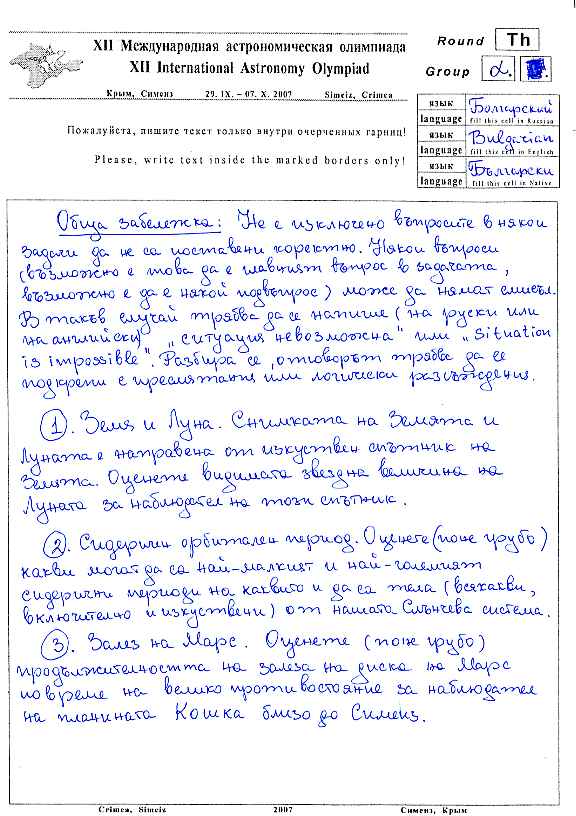 XII Международная астрономическая олимпиада
XII International Astronomy Olympiad
Round Th
Group α.
Крым, Симеиз 29. IX. – 07. X. 2007 Simeiz, Crimea
язык Болгарский
language fill this cell in Russian
язык Bulgarian
language fill this cell in English
язык Български
language fill this cell in Native
Пожалуйста, пишите текст только внутри очерченных гарниц!
Please, write text inside the marked borders only!
Обща забележка: Не е изключено въпросите в някои
задачи да не са поставени коректно. Някои въпроси
(възможно е това да е главният въпрос в задачата,
възможно е да е някой подвъпрос) може да нямат смисъл.
В такъв случай трябва да се напише (на руски или
на английски) „ситуация невозможна" или „situation
is impossible". Разбира се, отговорът трябва да се
подкрепи с пресмятания или логически разсъждения.
1. Земя и Луна. Снимката на Земята и
Луната е направена от изкуствен спътник на
Земята. Оценете видимата звездна величина на
Луната за наблюдател на този спътник.
2. Сидеричен орбитален период. Оценете (поне грубо)
какви могат да са най-малкият и най-големият
сидерични периоди на каквито и да са тела (всякакви,
включително и изкуствени) от нашата Слънчева система.
3. Залез на Марс. Оценете (поне грубо)
продължителността на залеза на диска на Марс
по време на велико противостояние за наблюдател
на планината Кошка близо до Симеиз.
Crimea, Simeiz 2007 Симеиз, Крым